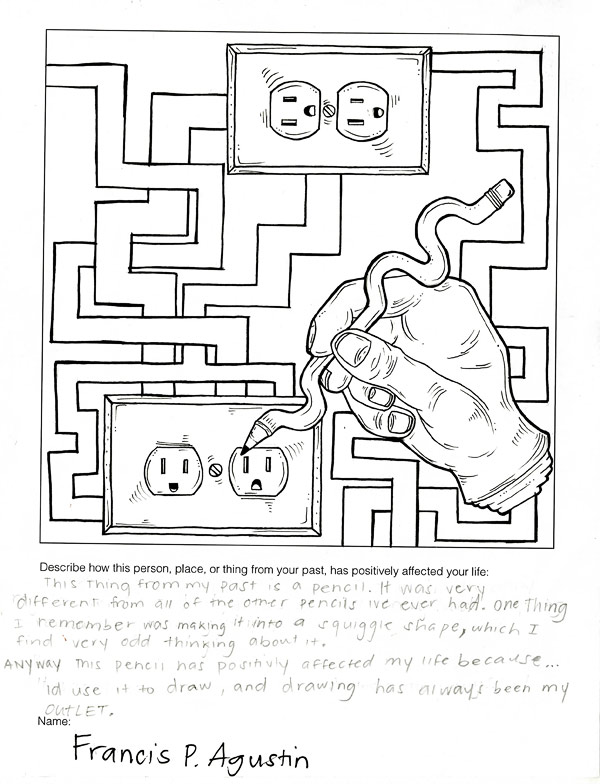 Describe how this person, place, or thing from your past, has positively affected your life:
This thing from my past is a pencil. It was very
different from all of the other pencils ive ever had. one thing
I remember was making it into a squiggle shape, which I
find very odd thinking about it.
ANYWAY This pencil has positivly affected my life because...
id use it to draw, and drawing has always been my
OUTLET.
Name:
Francis P. Agustin